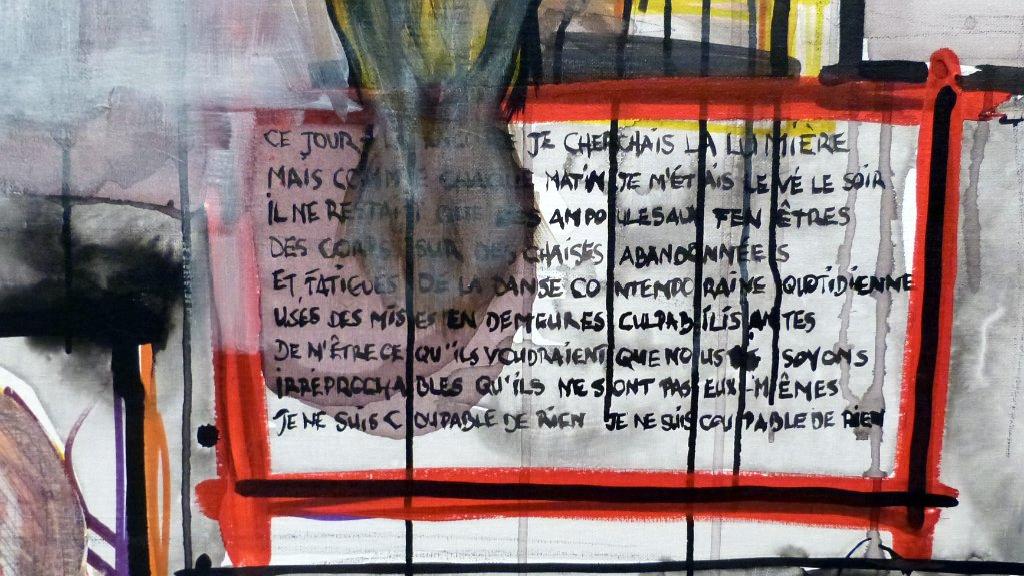 CE JOUR JE CHERCHAIS LA LUMIÈRE
MAIS COMME CHAQUE MATIN JE M'ÉTAIS LEVÉ LE SOIR
IL NE RESTAIT QUE DES AMPOULES AUX FENÊTRES
DES CORPS SUR DES CHAISES ABANDONNÉES
ET FATIGUÉS DE LA DANSE CONTEMPORAINE QUOTIDIENNE
USÉS DES MISES EN DEMEURES CULPABILISANTES
DE N'ÊTRE CE QU'ILS VOUDRAIENT QUE NOUS SOYONS
IRRÉPROCHABLES QU'ILS NE SONT PAS EUX-MÊMES
JE NE SUIS COUPABLE DE RIEN JE NE SUIS COUPABLE DE RIEN